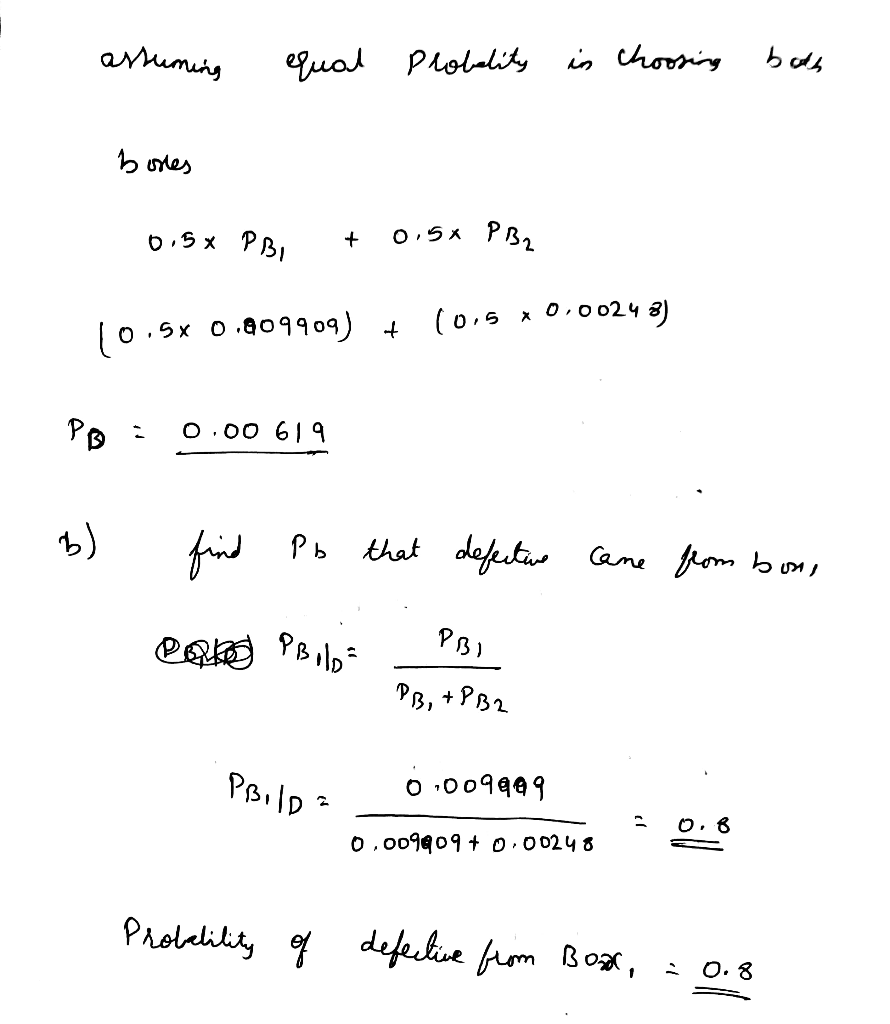 assuming equal Probelity in Choosing both
boxes
0.5x PB₁ + 0.5x PB₂
(0.5x 0.009909) + (0.5 x 0.00248)
PB = 0.00619
b) find Pb that defective came from box₁
PB₁/D = PB₁
PB₁ + PB2
PB₁/D = 0.009909
0.009909 + 0.00248 = 0.8
Probelility of defective from Box₁ = 0.8